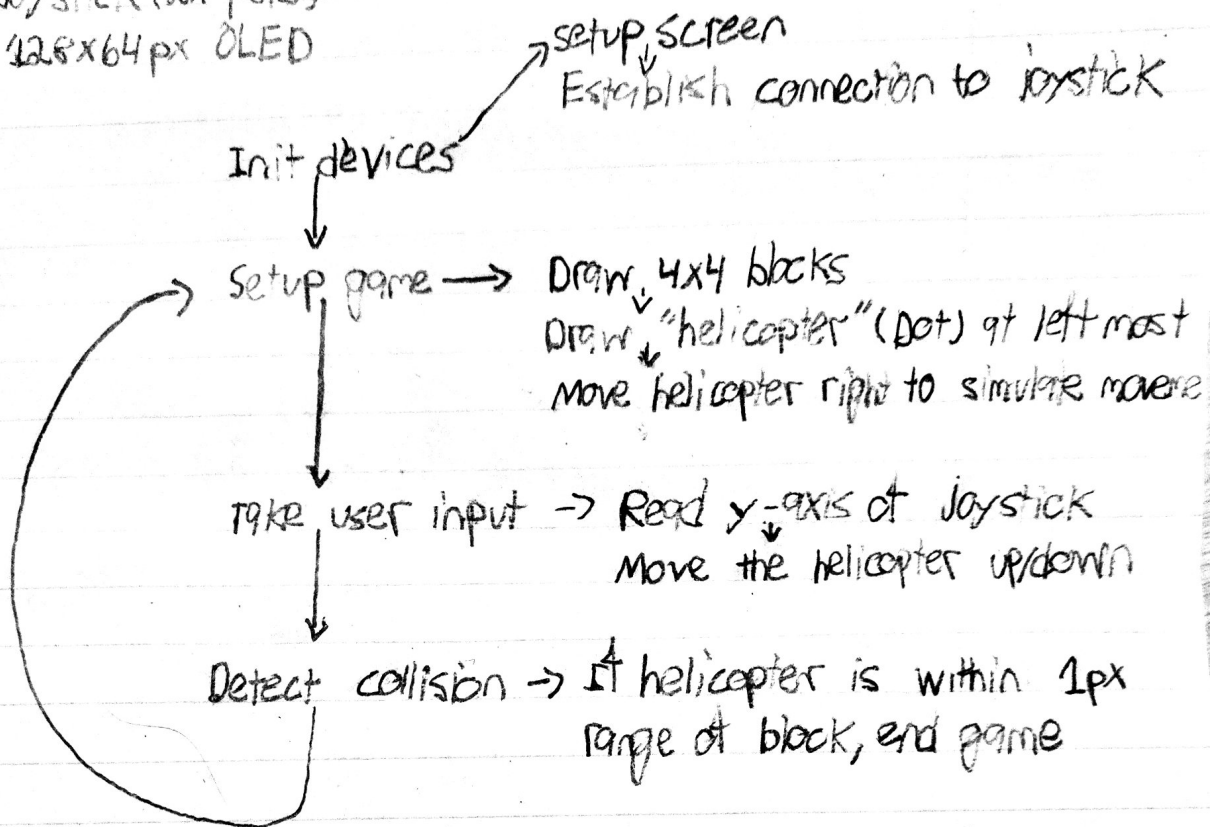 128x64px OLED
setup screen
Establish connection to joystick
Init devices
Setup game → Draw 4x4 blocks
Draw "helicopter" (Dot) at left most
Move helicopter right to simulate
Take user input → Read y-axis of joystick
Move the helicopter up/down
Detect collision → If helicopter is within 1px
range of block, end game